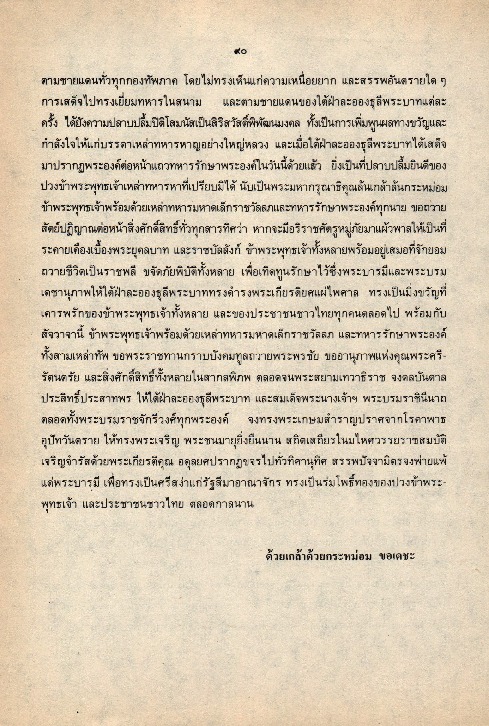 ๙๐
ตามชายแดนทั่วทุกกองทัพภาค โดยไม่ทรงเห็นแก่ความเหนื่อยยาก และสรรพอันตรายใด ๆ
การเสด็จไปทรงเยี่ยมทหารในสนาม และตามชายแดนของใต้ฝ่าละอองธุลีพระบาทแต่ละ
ครั้ง ได้ยังความปลาบปลื้มปิติโสมนัสเป็นสิริสวัสดิ์พิพัฒนมงคล ทั้งเป็นการเพิ่มพูนผลทางขวัญและ
กำลังใจให้แก่บรรดาเหล่าทหารหาญอย่างใหญ่หลวง และเมื่อใต้ฝ่าละอองธุลีพระบาทได้เสด็จ
มาปรากฏพระองค์ต่อหน้าแถวทหารรักษาพระองค์ในวันนี้ด้วยแล้ว ยิ่งเป็นที่ปลาบปลื้มยินดีของ
ปวงข้าพระพุทธเจ้าเหล่าทหารหาที่เปรียบมิได้ นับเป็นพระมหากรุณาธิคุณล้นเกล้าล้นกระหม่อม
ข้าพระพุทธเจ้าพร้อมด้วยเหล่าทหารมหาดเล็กราชวัลลภและทหารรักษาพระองค์ทุกนาย ขอถวาย
สัตย์ปฏิญาณต่อหน้าสิ่งศักดิ์สิทธิ์ทั่วทุกสารทิศว่า หากจะมีอริราชศัตรูหมู่ภัยมาแผ้วพาลให้เป็นที่
ระคายเคืองเบื้องพระยุคลบาท และราชบัลลังก์ ข้าพระพุทธเจ้าทั้งหลายพร้อมอยู่เสมอที่จักยอม
ถวายชีวิตเป็นราชพลี ขจัดภัยพิบัติทั้งหลาย เพื่อเทิดทูนรักษาไว้ซึ่งพระบารมีและพระบรม
เดชานุภาพให้ใต้ฝ่าละอองธุลีพระบาททรงดำรงพระเกียรติยศแผ่ไพศาล ทรงเป็นมิ่งขวัญที่
เคารพรักของข้าพระพุทธเจ้าทั้งหลาย และของประชาชนชาวไทยทุกคนตลอดไป พร้อมกับ
สัจวาจานี้ ข้าพระพุทธเจ้าพร้อมด้วยเหล่าทหารมหาดเล็กราชวัลลภ และทหารรักษาพระองค์
ทั้งสามเหล่าทัพ ขอพระราชทานกราบบังคมทูลถวายพระพรชัย ขออานุภาพแห่งคุณพระศรี-
รัตนตรัย และสิ่งศักดิ์สิทธิ์ทั้งหลายในสากลพิภพ ตลอดจนพระสยามเทวาธิราช จงดลบันดาล
ประสิทธิ์ประสาทพร ให้ใต้ฝ่าละอองธุลีพระบาท และสมเด็จพระนางเจ้าฯ พระบรมราชินีนาถ
ตลอดทั้งพระบรมราชจักรีวงศ์ทุกพระองค์ จงทรงพระเกษมสำราญปราศจากโรคาพาธ
อุปัทวันตราย ให้ทรงพระเจริญ พระชนมายุยิ่งยืนนาน สถิตเสถียรในมไหศวรรยราชสมบัติ
เจริญจำรัสด้วยพระเกียรติคุณ อดุลยศปรากฏขจรไปทั่วทิศานุทิศ สรรพปัจจามิตรจงพ่ายแพ้
แด่พระบารมี เพื่อทรงเป็นศรีสง่าแก่รัฐสีมาอาณาจักร ทรงเป็นร่มโพธิ์ทองของปวงข้าพระ-
พุทธเจ้า และประชาชนชาวไทย ตลอดกาลนาน
ด้วยเกล้าด้วยกระหม่อม ขอเดชะ